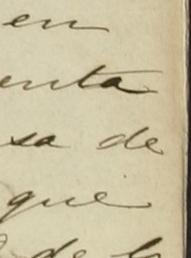 en
enta
sa de
que
de la